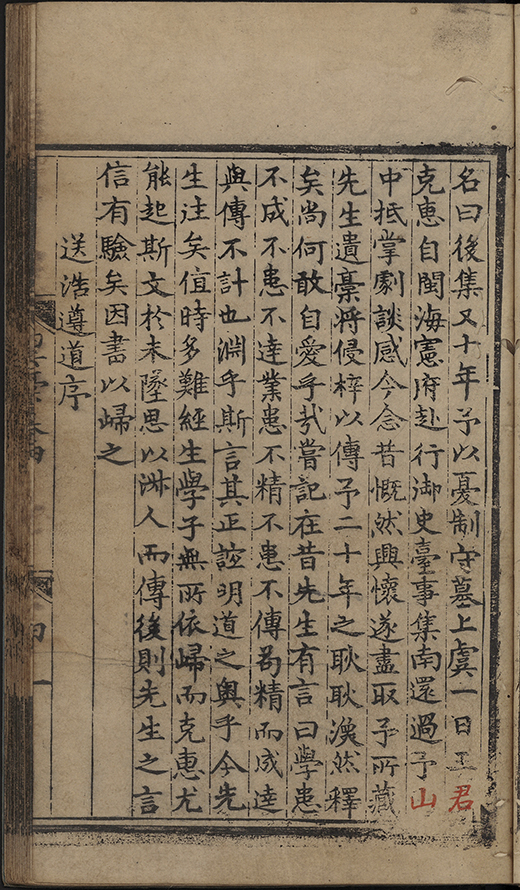 名曰後集又十年予以憂制守墓上虞一日王君
克惠自閩海憲府赴行御史臺事集南還過予山
中抵掌劇談感今念昔慨然興懷遂盡取予所藏
先生遺稾將侵梓以傳予二十年之耿耿渙然釋
矣尚何敢自愛乎㢤嘗記在昔先生有言曰學患
不成不患不達業患不精不患不傳苟精而成達
與傳不計也淵乎斯言其正誼明道之奧乎今先
生往矣值時多難經生學子無所依歸而克惠尤
能起斯文於未墜思以淑人而傳後則先生之言
信有驗矣因書以歸之
送浩遵道序